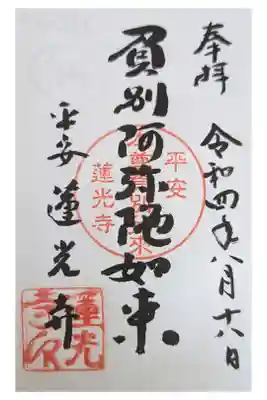 奉拝
令和四年八月十六日
負別阿弥陀如来
平安
蓮光寺
平安 蓮光寺
蓮光寺印